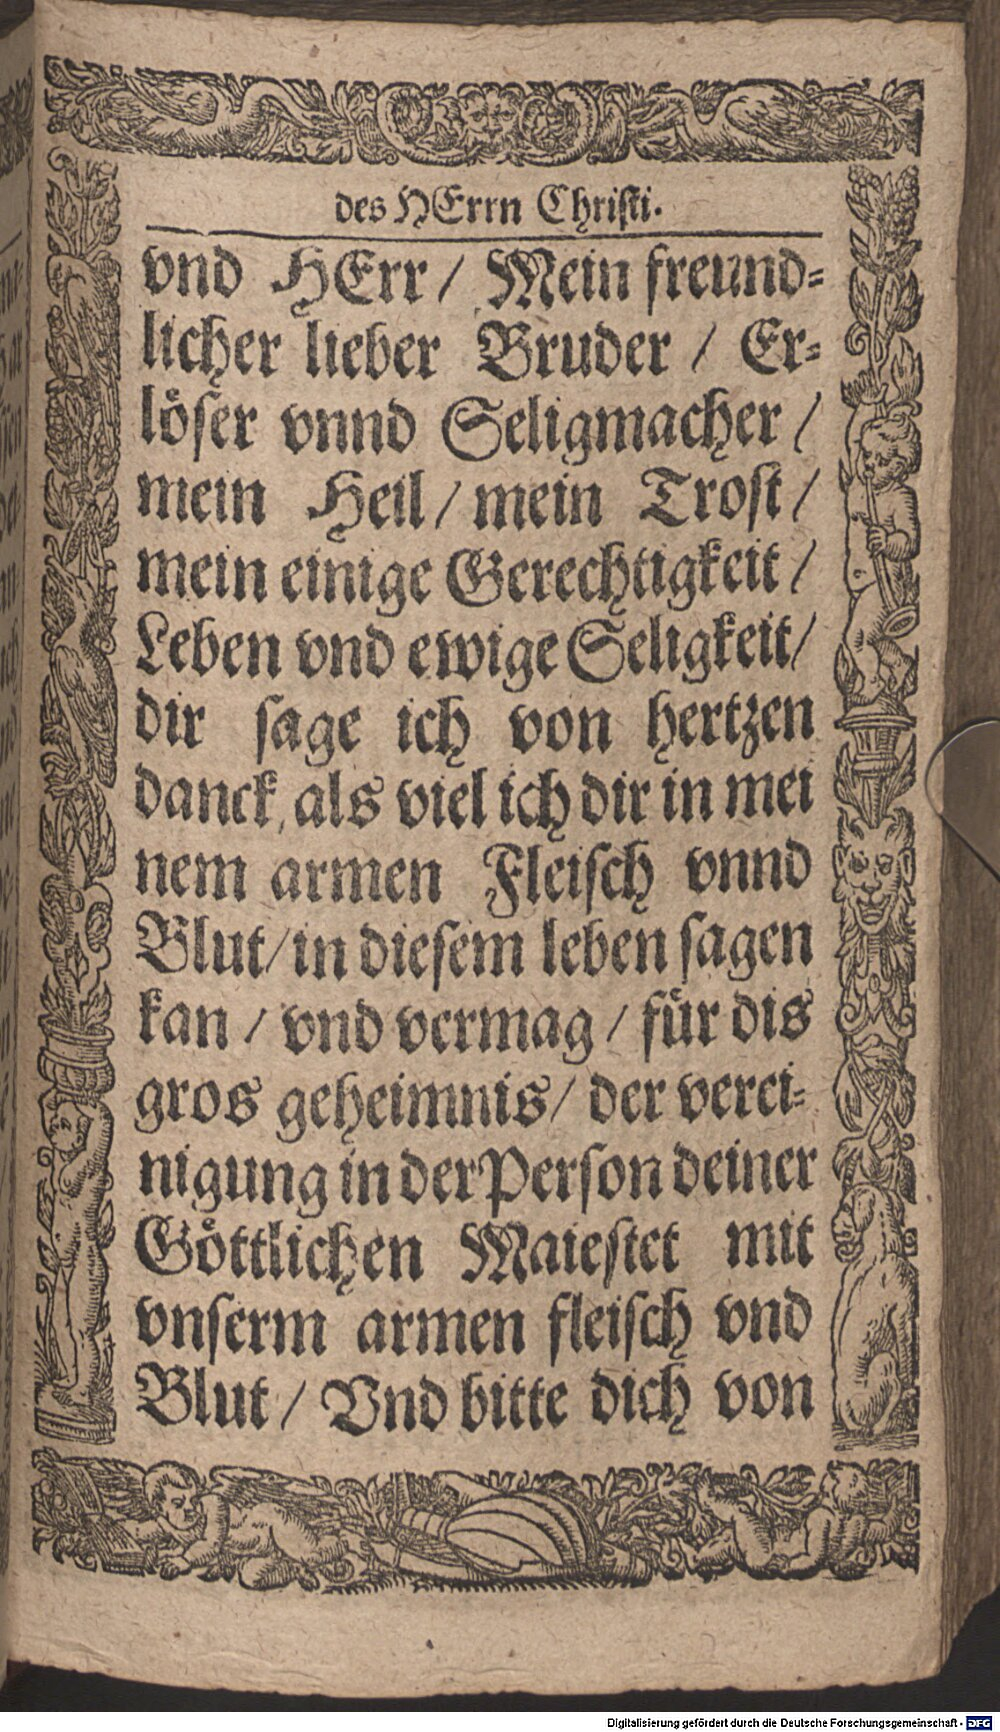 des HErrn Christi.
vnd HErr / Mein freund-
licher lieber Bruder / Er-
löser vnnd Seligmacher /
mein Heil / mein Trost /
mein einige Gerechtigkeit /
Leben vnd ewige Seligkeit /
dir sage ich von hertzen
danck, als viel ich dir in mei
nem armen Fleisch vnnd
Blut / in diesem leben sagen
kan / vnd vermag / für dis
gros geheimnis / der verei-
nigung in der Person deiner
Göttlichen Maiestet mit
vnserm armen fleisch vnd
Blut / Vnd bitte dich von
Digitalisierung gefördert durch die Deutsche Forschungsgemeinschaft - DFG